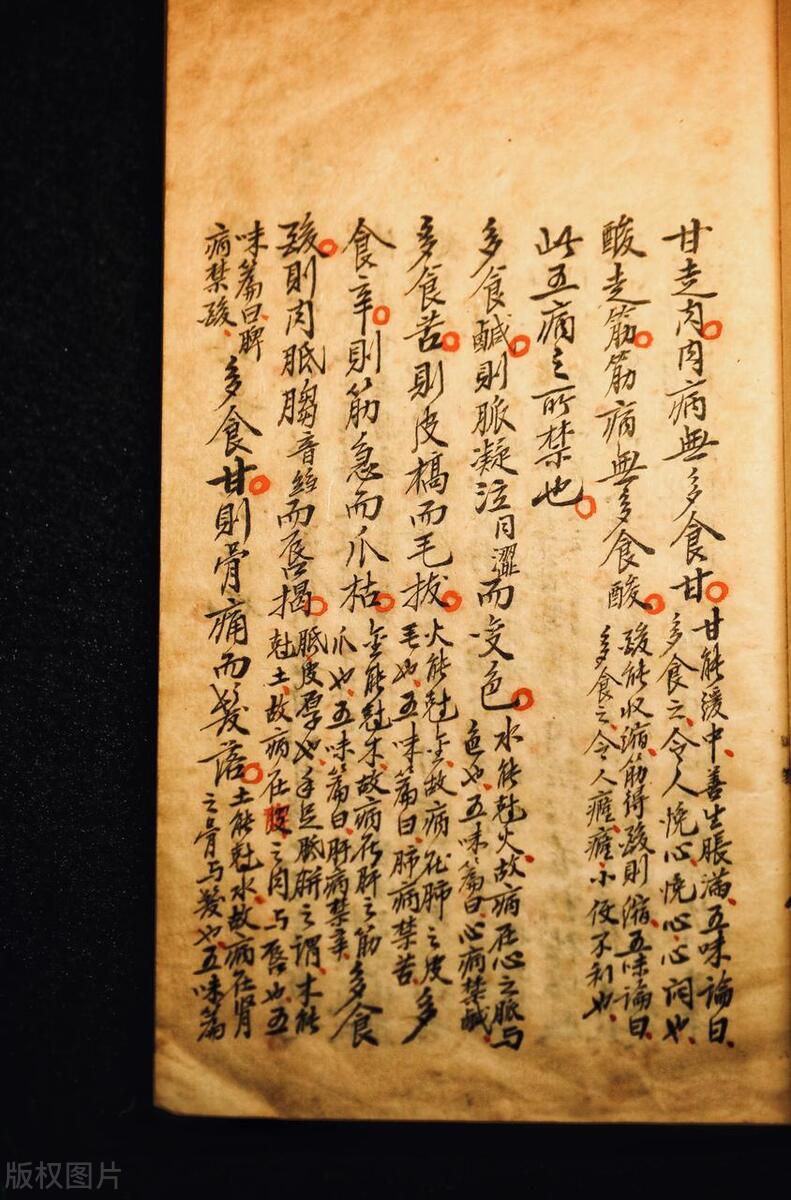 甘走肉肉病無多食甘
甘能緩中善生脹滿五味論曰
多食之令人悗心悗心心闷也
酸走筋筋病無多食酸
酸能收縮筋得酸則縮五味論曰
多食之令人癃癃小便不利也
此五病之所禁也
多食鹹則脈凝泣同澀而变色
水能尅火故病在心之脈与
色也五味篇曰心病禁鹹
多食苦則皮槁而毛拔
火能尅金故病在肺之皮
毛也五味篇曰肺病禁苦
多
食辛則筋急而爪枯
金能尅木故病在肝之筋
爪也五味篇曰肝病禁辛
多食
酸則肉胝䐢音而唇揭
胝皮厚也手足胝胼之謂木能
尅土故病在之肉与唇也五
味篇曰脾
病禁酸
多食甘則骨痛而髮落
土能尅水故病在腎
之骨与髮也五味篇
版权图片